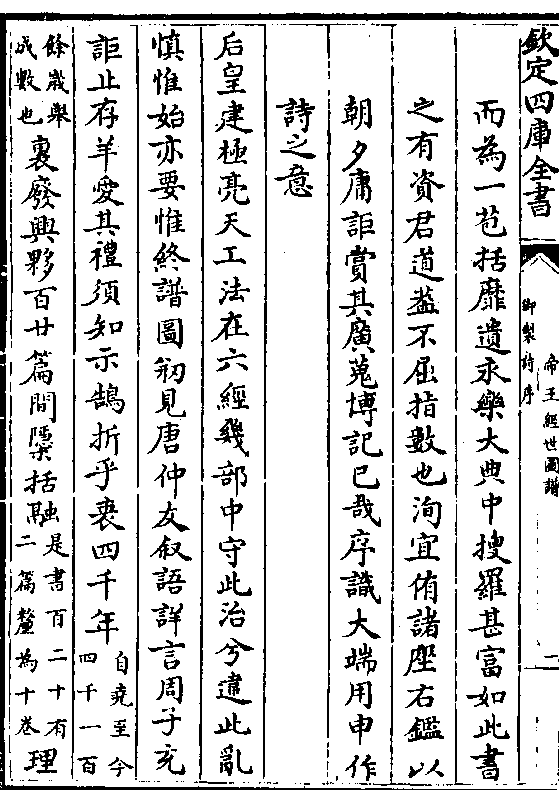 欽定四庫全書
帝王經世圖譜
御製詩序
一
而為一苞括靡遺永樂大典中搜羅甚富如此書
之有資君道蓋不屈指數也洵宜侑諸座右鑑以
朝夕庸詎賞其廣蒐博記已哉序識大端用申作
詩之意
后皇建極亮天工法在六經幾部中守此治兮違此亂
慎惟始亦要惟終譜圖剏見唐仲友叙語詳言周子充
詎止存羊愛其禮須知示鵠折乎衷四千年自堯至今四千一百
餘歲舉成數也裏廢興夥百廿篇間檃括融是書百二十有二篇釐為十卷理